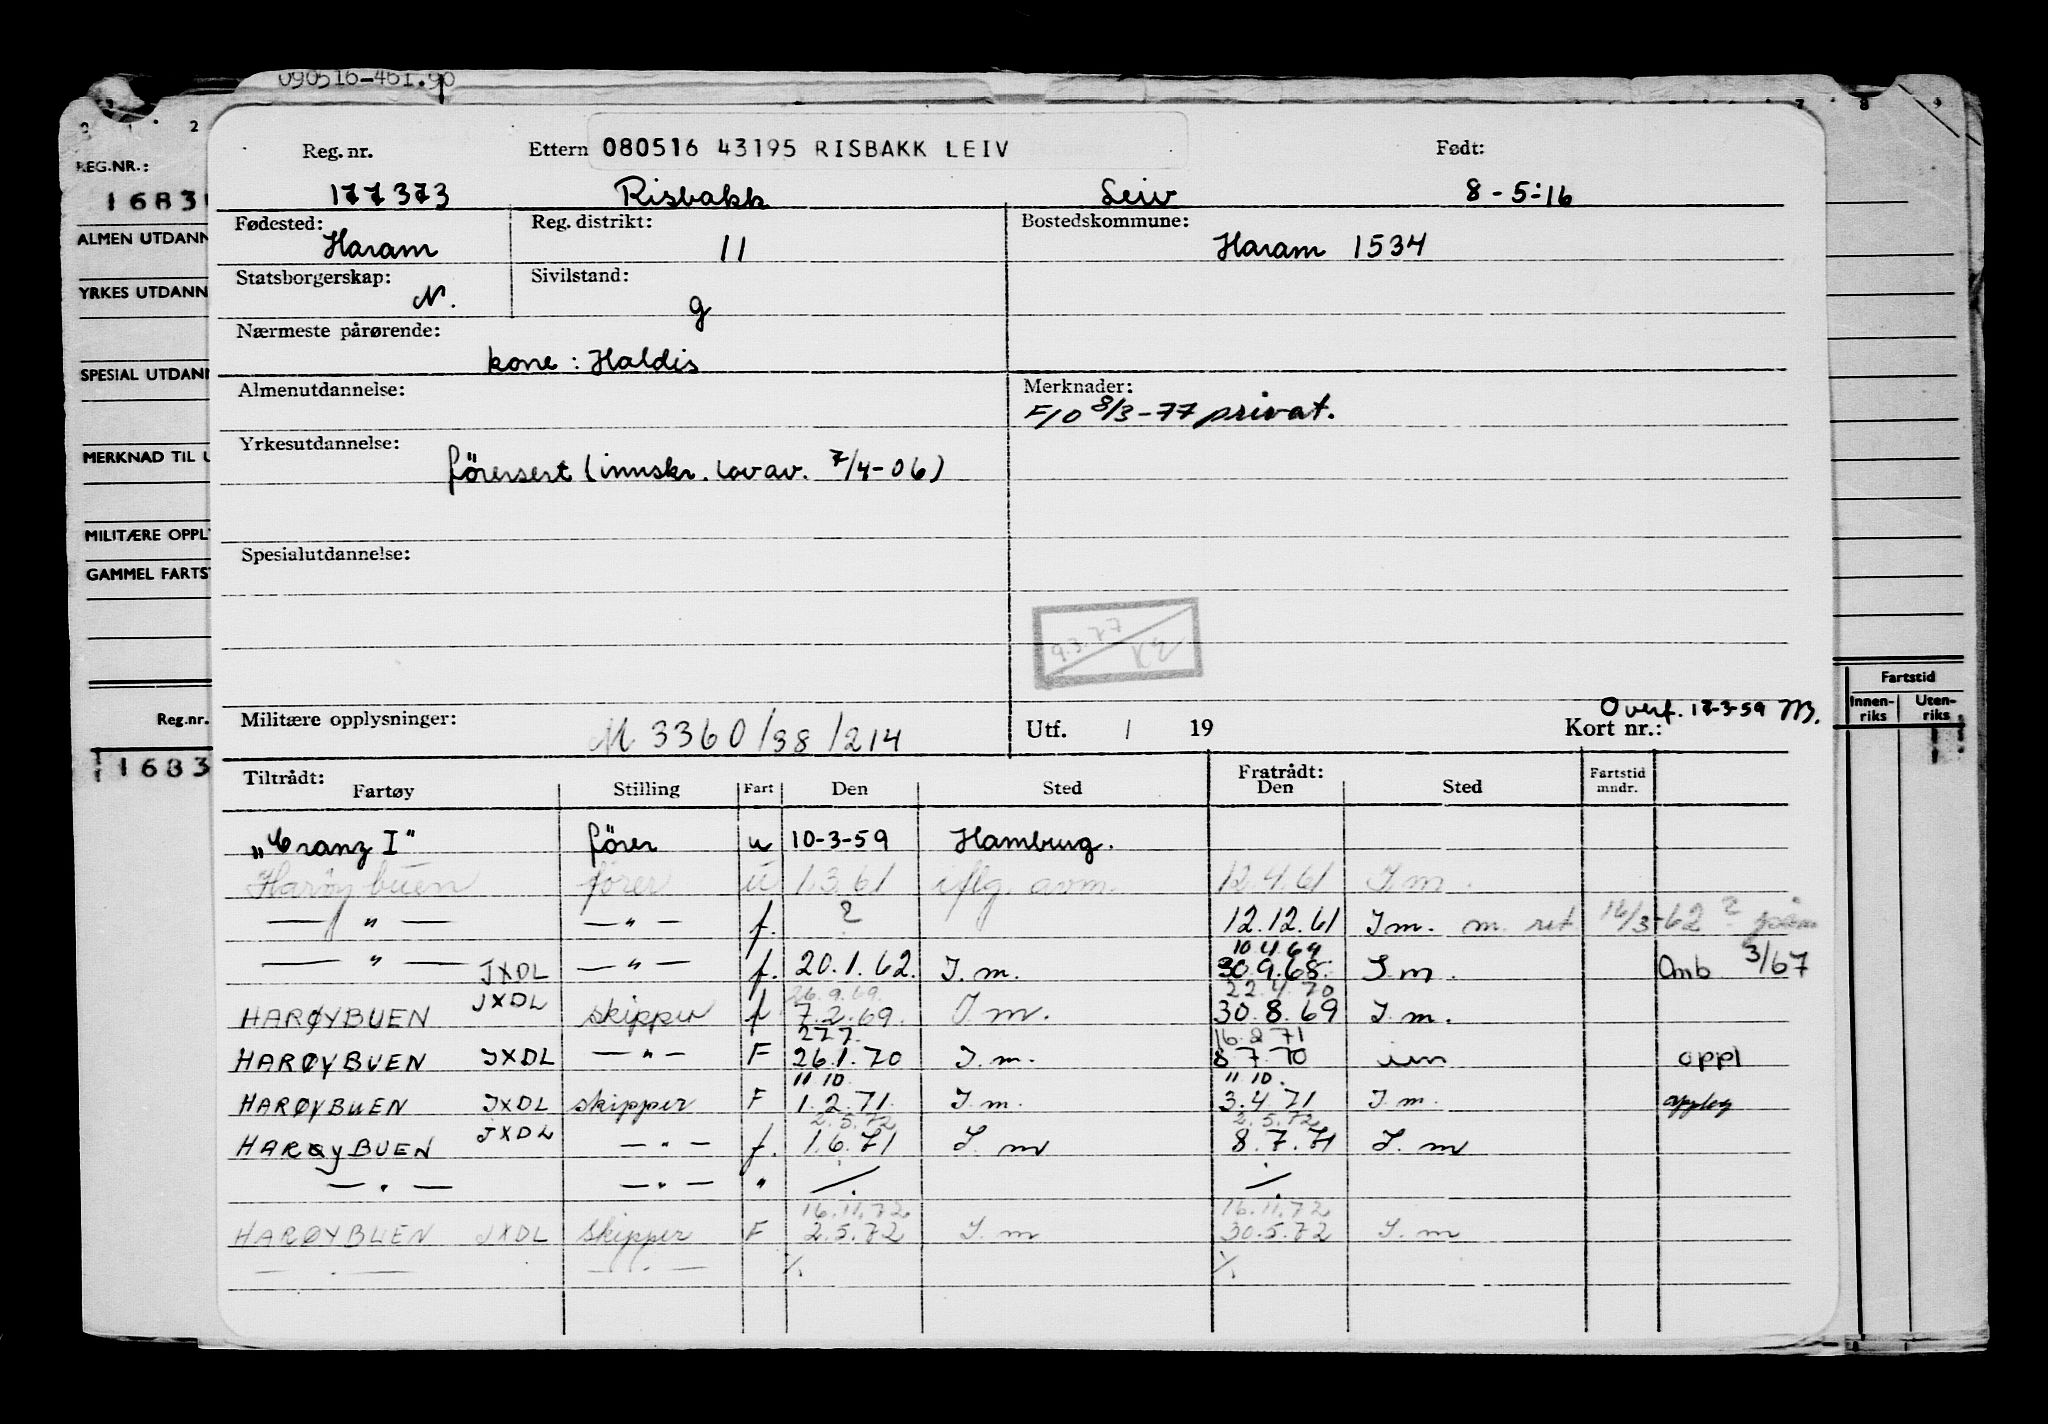 090516-461.90
REG.NR.:
1683
ALMEN UTDANN
YRKES UTDANN
SPESIAL UTDANN
MERKNAD TIL U
MILITÆRE OPPL
GAMMEL FARTS
Reg.nr.
1683
Fartstid
Innen-riks Uten-riks
Reg. nr. Ettern 080516 43195 RISBAKK LEIV Født:
177373 Risbakk Leiv 8-5-16
Fødested: Reg. distrikt: Bostedskommune:
Haram 11 Haram 1534
Statsborgerskap: Sivilstand:
N. g
Nærmeste pårørende:
kone: Haldis
Almenutdannelse: Merknader:
F/O 8/3-77 privat.
Yrkesutdannelse:
førersert (innskr. lov av. 7/4-06)
Spesialutdannelse:
9.3.77
Overf. 17-3-59
Militære opplysninger: M 3360/38/214 Utf. / 19 Kort nr.:
Tiltrådt: Fratrådt: Fartstid
Fartøy Stilling Fart Den Sted Den Sted mndr.
"Cranz I" fører u 10-3-59 Hamburg.
Harøybuen fører u 1.3.61 iflg. avm. 12.4.61 I.m.
— " — — " — f. ? 12.12.61 I m. m. ret 16/3-62 ?
10.4.64
— " — JXDL — " — f. 20.1.62. I.m. 30.9.68. I.m. Omb 3/67
26.9.69. 22.4.70
HARØYBUEN JXDL skipper f 7.2.69. I.m. 30.8.69 I.m.
27.7. 16.2.71
HARØYBUEN JXDL — " — F 26.1.70 I.m. 8.7.70 im oppl
11.10. 11.10.
HARØYBUEN JXDL skipper F 1.2.71. I.m. 3.4.71 I.m.
2.5.72 2.5.72
HARØYBUEN JXDL — " — f. 1.6.71 I.m 8.7.71 I.m
— " — — " — "
16.11.72 16.11.72
HARØYBUEN JXDL skipper F 2.5.72 I.m 30.5.72 I.m